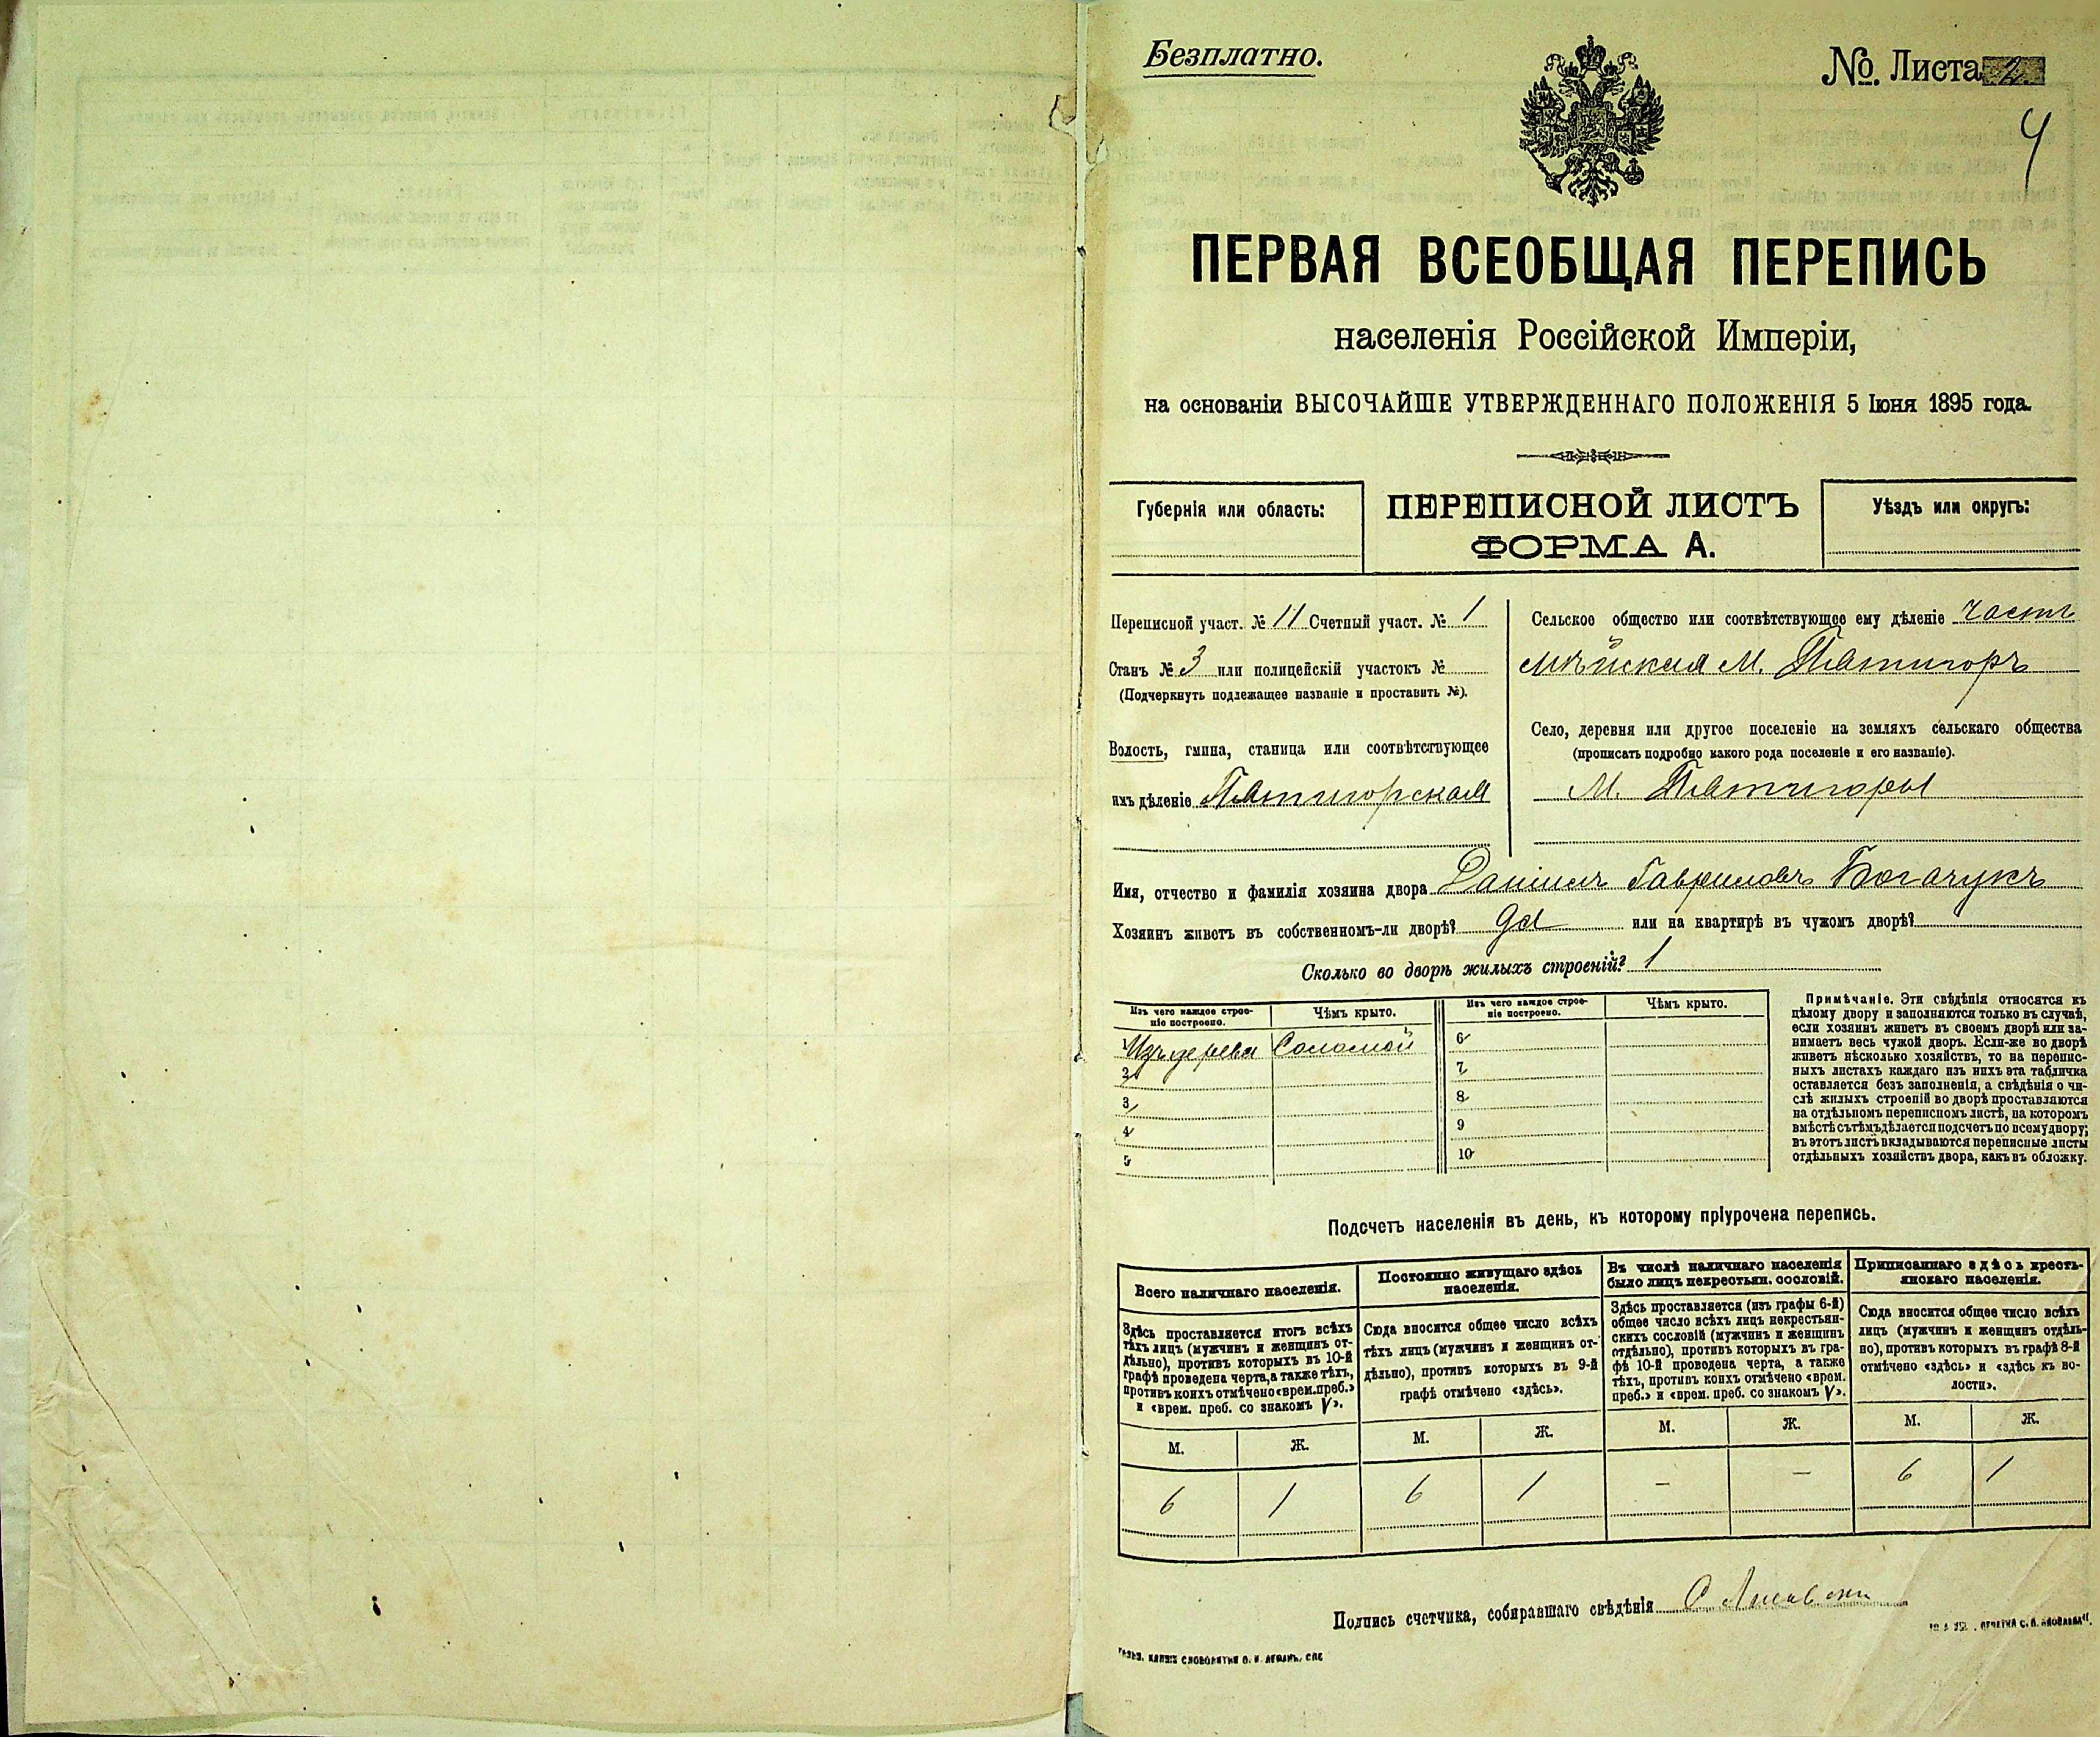 Безплатно.
№. Листа 2
4
ПЕРВАЯ ВСЕОБЩАЯ ПЕРЕПИСЬ
населенія Россійской Имперіи,
на основаніи ВЫСОЧАЙШЕ УТВЕРЖДЕННАГО ПОЛОЖЕНІЯ 5 Іюня 1895 года.
Губернія или область:
ПЕРЕПИСНОЙ ЛИСТЪ
ФОРМА А.
Уѣздъ или округъ:
Переписной участ. № 11 Счетный участ. № 1
Станъ № 3 или полицейскій участокъ №
(Подчеркнуть подлежащее названіе и проставить №).
Волость, гмина, станица или соотвѣтствующее
имъ дѣленіе Пятигорская
Сельское общество или соотвѣтствующее ему дѣленіе часть
М. Пятигоръ
Село, деревня или другое поселеніе на земляхъ сельскаго общества
(прописать подробно какого рода поселеніе и его названіе).
М. Пятигоры
Имя, отчество и фамилія хозяина двора Даніилъ Гавриловъ Богачукъ
Хозяинъ живетъ въ собственномъ-ли дворѣ? да или на квартирѣ въ чужомъ дворѣ?
Сколько во дворѣ жилыхъ строеній? 1
Изъ чего каждое строе-
ніе построено.
Чѣмъ крыто.
Изъ чего каждое строе-
ніе построено.
Чѣмъ крыто.
1 Изъ дерева Соломой
2
3
4
5
6
7
8
9
10
Примѣчаніе. Эти свѣдѣнія относятся къ
цѣлому двору и заполняются только въ случаѣ,
если хозяинъ живетъ въ своемъ дворѣ или за-
нимаетъ весь чужой дворъ. Если-же во дворѣ
живетъ нѣсколько хозяйствъ, то на перепис-
ныхъ листахъ каждаго изъ нихъ эта табличка
оставляется безъ заполненія, а свѣдѣнія о чи-
слѣ жилыхъ строеній во дворѣ проставляются
на отдѣльномъ переписномъ листѣ, на которомъ
вмѣстѣ съ тѣмъ дѣлается подсчетъ по всему двору;
въ этотъ листъ вкладываются переписные листы
отдѣльныхъ хозяйствъ двора, какъ въ обложку.
Подсчетъ населенія въ день, къ которому пріурочена перепись.
Всего наличнаго населенія.
Здѣсь проставляется итогъ всѣхъ
тѣхъ лицъ (мужчинъ и женщинъ от-
дѣльно), противъ которыхъ въ 10-й
графѣ проведена черта, а также тѣхъ,
противъ коихъ отмѣчено «врем. преб.»
и «врем. преб. со знакомъ V».
Постоянно живущаго здѣсь
населенія.
Сюда вносится общее число всѣхъ
тѣхъ лицъ (мужчинъ и женщинъ от-
дѣльно), противъ которыхъ въ 9-й
графѣ отмѣчено «здѣсь».
Въ числѣ наличнаго населенія
было лицъ некрестьян. сословій.
Здѣсь проставляется (изъ графы 6-й)
общее число всѣхъ лицъ некрестьян-
скихъ сословій (мужчинъ и женщинъ
отдѣльно), противъ которыхъ въ гра-
фѣ 10-й проведена черта, а также
тѣхъ, противъ коихъ отмѣчено «врем.
преб.» и «врем. преб. со знакомъ V».
Приписаннаго здѣсь кресть-
янскаго населенія.
Сюда вносится общее число всѣхъ
лицъ (мужчинъ и женщинъ отдѣль-
но), противъ которыхъ въ графѣ 8-й
отмѣчено «здѣсь» и «здѣсь къ во-
лости».
М. Ж. М. Ж. М. Ж. М. Ж.
6 1 6 1 — — 6 1
Подпись счетчика, собиравшаго свѣдѣнія
СЛОВОЛИТНИ О. И. ЛЕМАНЪ, СПБ